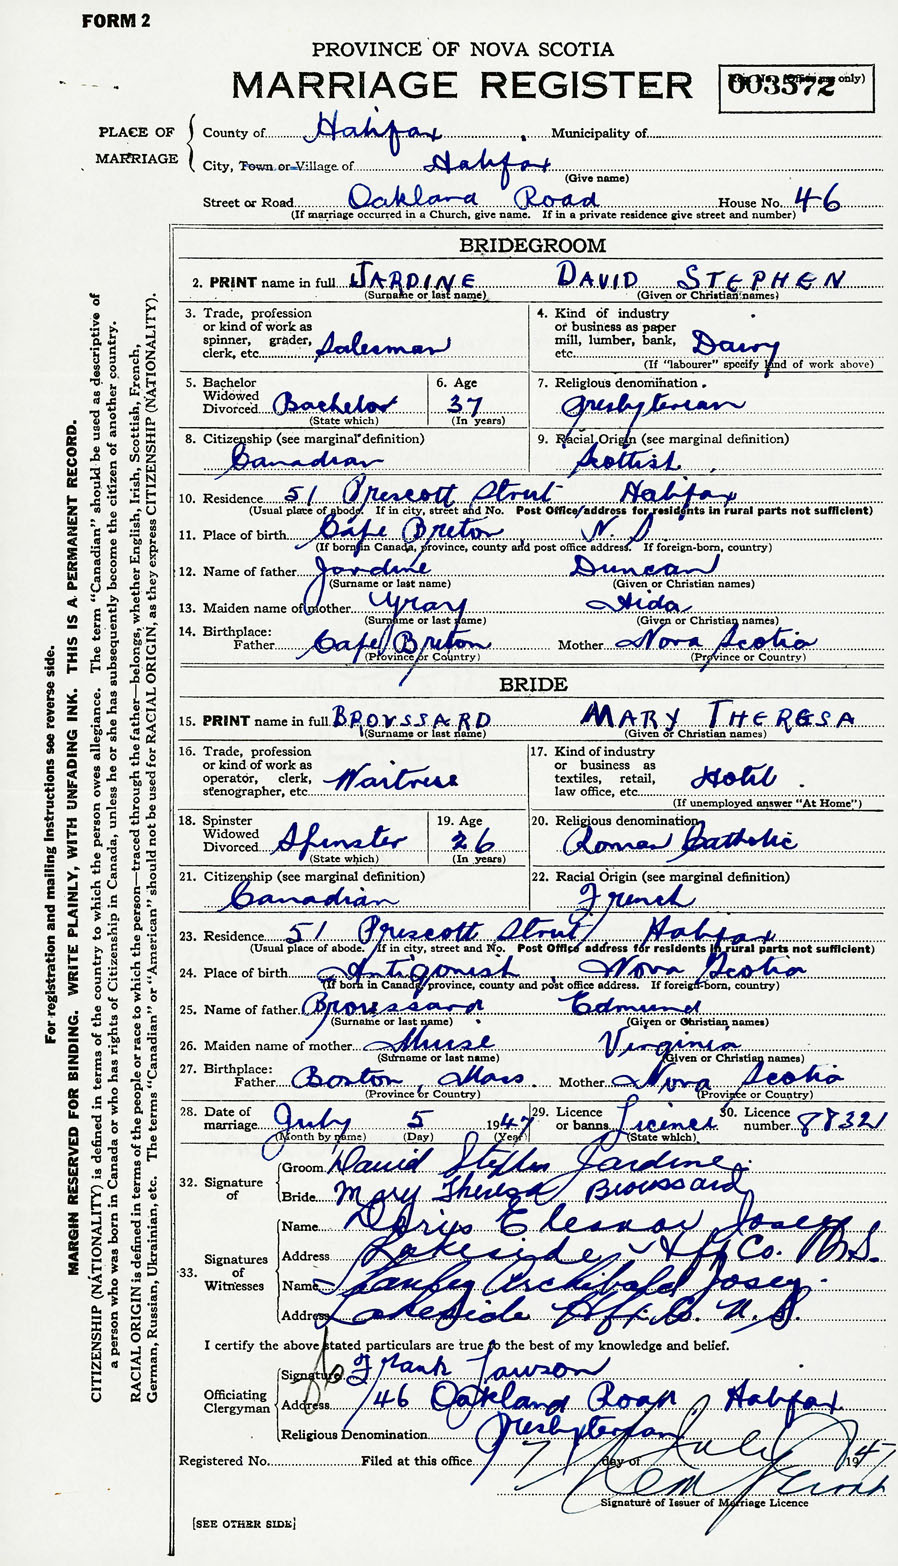 FORM 2
PROVINCE OF NOVA SCOTIA
MARRIAGE REGISTER
003572
PLACE OF MARRIAGE
County of Halifax Municipality of
City, Town or Village of Halifax
(Give name)
Street or Road Oakland Road House No. 46
(If marriage occurred in a Church, give name. If in a private residence give street and number)
BRIDEGROOM
2. PRINT name in full JARDINE DAVID STEPHEN
(Surname or last name) (Given or Christian names)
3. Trade, profession or kind of work as spinner, grader, clerk, etc. Salesman
4. Kind of industry or business as paper mill, lumber, bank, etc. Dairy
(If "labourer" specify kind of work above)
5. Bachelor Widowed Divorced Bachelor
(State which)
6. Age 37
(In years)
7. Religious denomination. Presbyterian
8. Citizenship (see marginal definition)
Canadian
9. Racial Origin (see marginal definition)
Scottish
10. Residence 51 Prescott Street Halifax
(Usual place of abode. If in city, street and No. Post Office address for residents in rural parts not sufficient)
11. Place of birth Cape Breton N.S
(If born in Canada, province, county and post office address. If foreign-born, country)
12. Name of father Jardine Duncan
(Surname or last name) (Given or Christian names)
13. Maiden name of mother Gray Aida
(Surname or last name) (Given or Christian names)
14. Birthplace: Father Cape Breton Mother Nova Scotia
(Province or Country) (Province or Country)
BRIDE
15. PRINT name in full BROUSSARD MARY THERESA
(Surname or last name) (Given or Christian names)
16. Trade, profession or kind of work as operator, clerk, stenographer, etc. Waitress
17. Kind of industry or business as textiles, retail, law office, etc. Hotel
(If unemployed answer "At Home")
18. Spinster Widowed Divorced Spinster
(State which)
19. Age 26
(In years)
20. Religious denomination Roman Catholic
21. Citizenship (see marginal definition)
Canadian
22. Racial Origin (see marginal definition)
French
23. Residence 51 Prescott Street Halifax
(Usual place of abode. If in city, street and No. Post Office address for residents in rural parts not sufficient)
24. Place of birth Antigonish, Nova Scotia
(If born in Canada, province, county and post office address. If foreign-born, country)
25. Name of father Broussard Edmund
(Surname or last name) (Given or Christian names)
26. Maiden name of mother Muise Virginia
(Surname or last name) (Given or Christian names)
27. Birthplace: Father Boston, Mass. Mother Nova Scotia
(Province or Country) (Province or Country)
28. Date of marriage July 5 1947
(Month by name) (Day) (Year)
29. Licence or banns License
(State which)
30. Licence number 88321
32. Signature of
Groom David Stephen Jardine
Bride Mary Theresa Broussard
33. Signatures of Witnesses
Name Doris Eleanor Josey
Address Lakeside Hfx Co. N.S.
Name Stanley Archibald Josey
Address Lakeside Hfx. Co. N.S.
I certify the above stated particulars are true to the best of my knowledge and belief.
Officiating Clergyman
Signature Frank Lawson
Address 46 Oakland Road Halifax
Religious Denomination Presbyterian
Registered No. Filed at this office 7 day of July 1947
Signature of Issuer of Marriage Licence
[SEE OTHER SIDE]
For registration and mailing instructions see reverse side.
MARGIN RESERVED FOR BINDING. WRITE PLAINLY, WITH UNFADING INK. THIS IS A PERMANENT RECORD.
CITIZENSHIP (NATIONALITY) is defined in terms of the country to which the person owes allegiance. The term "Canadian" should be used as descriptive of
a person who was born in Canada or who has rights of Citizenship in Canada, unless he or she has subsequently become the citizen of another country.
RACIAL ORIGIN is defined in terms of the people or race to which the person—traced through the father—belongs, whether English, Irish, Scottish, French,
German, Russian, Ukrainian, etc. The terms "Canadian" or "American" should not be used for RACIAL ORIGIN, as they express CITIZENSHIP (NATIONALITY).